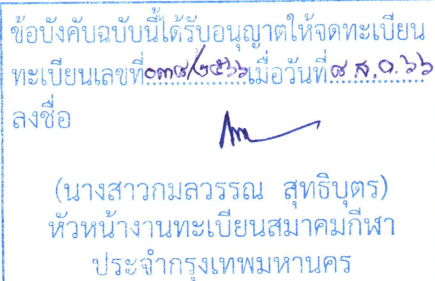 ข้อบังคับฉบับนี้ได้รับอนุญาตให้จดทะเบียน
ทะเบียนเลขที่ ๐๓๘/๒๕๖๖ เมื่อวันที่ ๘ ส.ค. ๖๖
ลงชื่อ
(นางสาวกมลวรรณ สุทธิบุตร)
หัวหน้างานทะเบียนสมาคมกีฬา
ประจำกรุงเทพมหานคร